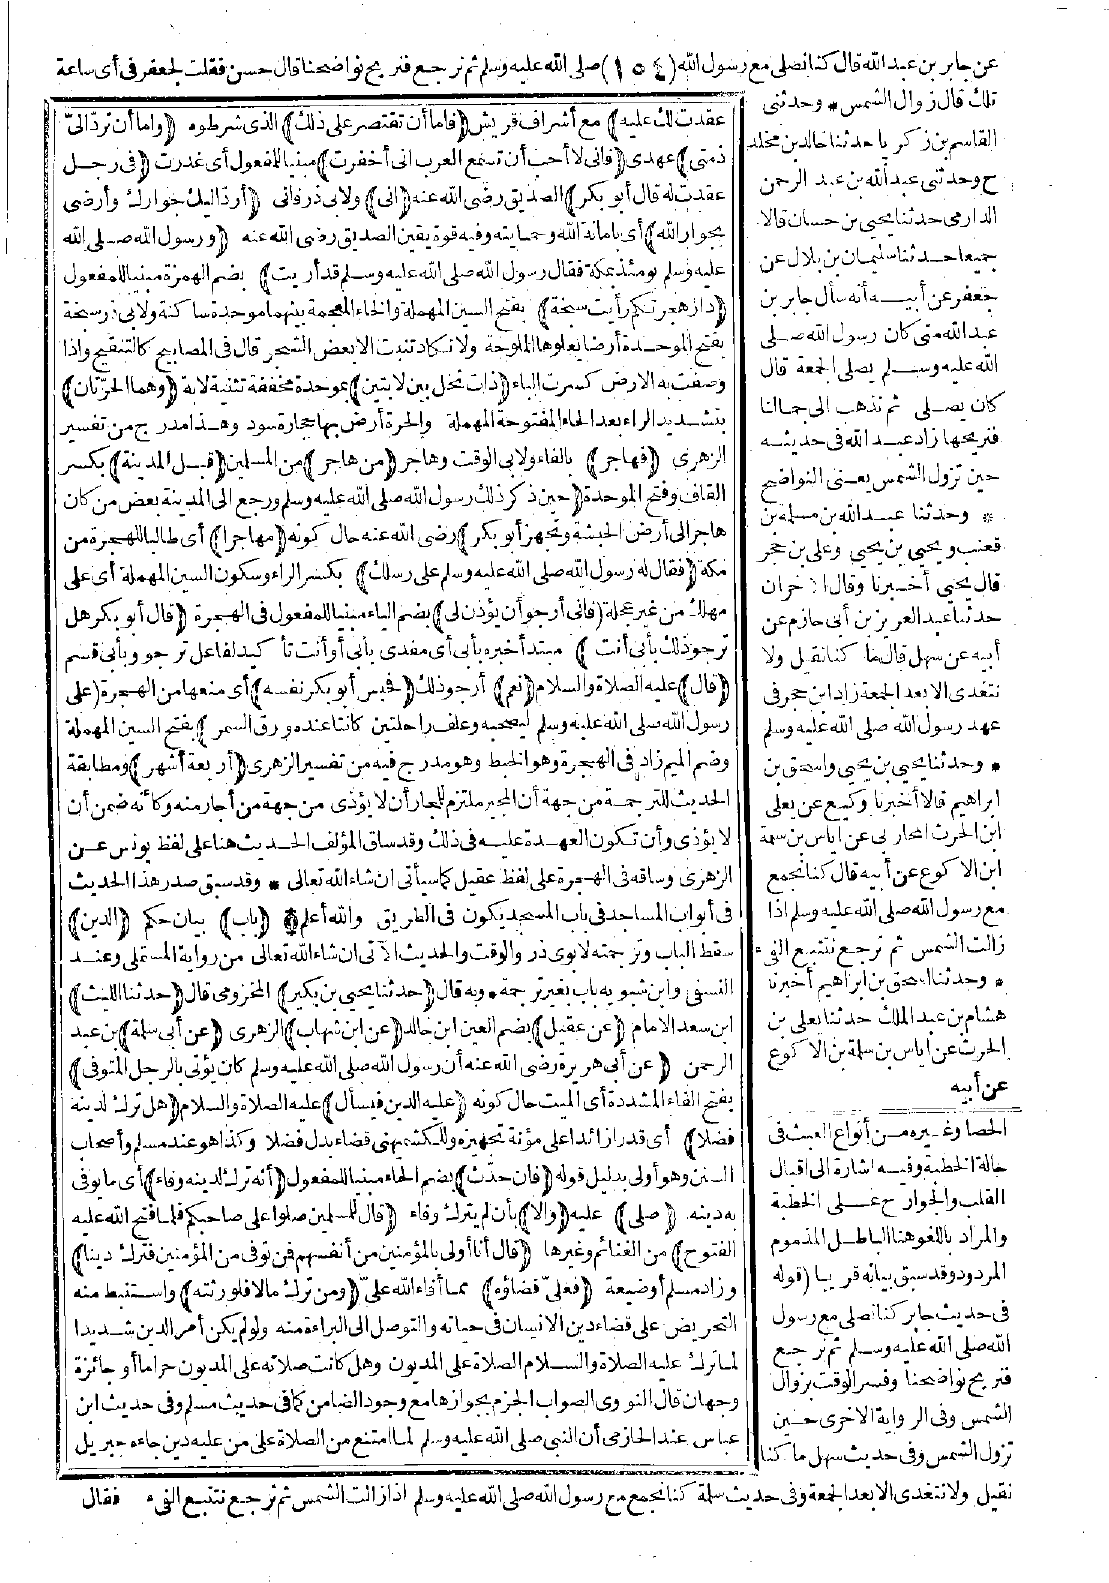 عن جابر بن عبد الله قال كنا نصلى مع رسول الله (١٥٤) صلى الله عليه وسلم ثم نرجع فنريح نواضحنا قال حسن فقلت لجعفر فى أى ساعة
تلك قال زوال الشمس * وحدثنى
القاسم بن زكريا حدثنا خالد بن مخلد
ح وحدثنى عبد الله بن عبد الرحمن
الدارمى حدثنا يحيى بن حسان قالا
جميعا حدثنا سليمان بن بلال عن
جعفر عن أبيه أنه سأل جابر بن
عبد الله متى كان رسول الله صلى
الله عليه وسلم يصلى الجمعة قال
كان يصلى ثم نذهب الى جمالنا
فنريحها زاد عبد الله فى حديثه
حين تزول الشمس يعنى النواضح
* وحدثنا عبد الله بن مسلمة بن
قعنب ويحيى بن يحيى وعلى بن حجر
قال يحيى أخبرنا وقال الآخران
حدثنا عبد العزيز بن أبى حازم عن
أبيه عن سهل قال ما كنا نقيل ولا
نتغدى الا بعد الجمعة زاد ابن حجر فى
عهد رسول الله صلى الله عليه وسلم
* وحدثنا يحيى بن يحيى واسحق بن
ابراهيم قالا أخبرنا وكيع عن يعلى
ابن الحرث المحاربى عن اياس بن سلمة
ابن الاكوع عن أبيه قال كنا نجمع
مع رسول الله صلى الله عليه وسلم اذا
زالت الشمس ثم نرجع نتتبع الفىء
* وحدثنا اسحق بن ابراهيم أخبرنا
هشام بن عبد الملك حدثنا يعلى بن
الحرث عن اياس بن سلمة بن الاكوع
عن أبيه
الحصا وغيره من أنواع العبث فى
حالة الخطبة وفيه اشارة الى اقبال
القلب والجوارح على الخطبة
والمراد باللغو هنا الباطل المذموم
المردود وقد سبق بيانه قريبا (قوله
فى حديث جابر كنا نصلى مع رسول
الله صلى الله عليه وسلم ثم نرجع
فنريح نواضحنا وفسر الوقت بزوال
الشمس وفى الرواية الاخرى حين
تزول الشمس وفى حديث سهل ما كنا
نقيل ولا نتغدى الا بعد الجمعة وفى حديث سلمة كنا نجمع مع رسول الله صلى الله عليه وسلم اذا زالت الشمس ثم نرجع نتتبع الفىء فقال
عقدت لك عليه) مع أشراف قريش (فاما أن تقتصر على ذلك) الذى شرطوه (واما أن ترد الىّ
ذمتى) عهدى (فانى لا أحب أن تسمع العرب انى أخفرت) مبنيا للمفعول أى غدرت (فى رجل
عقدت له قال أبو بكر) الصديق رضى الله عنه (انى) ولابى ذر فانى (أرد اليك جوارك وأرضى
بجوار الله) أى بامانة الله وحمايته وفيه قوة يقين الصديق رضى الله عنه (ورسول الله صلى الله
عليه وسلم يومئذ بمكة فقال رسول الله صلى الله عليه وسلم قد أريت) بضم الهمزة مبنيا للمفعول
(دار هجرتكم رأيت سبخة) بفتح السين المهملة والخاء المعجمة بينهما موحدة ساكنة ولابى ذر سبخة
بفتح الموحدة أرضا يعلوها الملوحة ولا تكاد تنبت الا بعض الشجر قال فى المصابيح كالتنقيح واذا
وصفت به الارض كسرت الباء (ذات نخل بين لابتين) بموحدة مخففة تثنية لابة (وهما الحرّتان)
بتشديد الراء بعد الحاء المفتوحة المهملة والحرة أرض بها حجارة سود وهذا مدرج من تفسير
الزهرى (فهاجر) بالفاء ولابى الوقت وهاجر (من هاجر) من المسلمين (قبل المدينة) بكسر
القاف وفتح الموحدة (حين ذكر ذلك رسول الله صلى الله عليه وسلم ورجع الى المدينة بعض من كان
هاجر الى أرض الحبشة وتجهز أبو بكر) رضى الله عنه حال كونه (مهاجرا) أى طالبا للهجرة من
مكة (فقال له رسول الله صلى الله عليه وسلم على رسلك) بكسر الراء وسكون السين المهملة أى على
مهلك من غير عجلة (فانى أرجو أن يؤذن لى) بضم الياء مبنيا للمفعول فى الهجرة (قال أبو بكر هل
ترجو ذلك بأبى أنت) مبتدأ خبره بأبى أى مفدى بأبى أو أنت تأكيد لفاعل ترجو وبأبى قسم
(قال) عليه الصلاة والسلام (نعم) أرجو ذلك (فحبس أبو بكر نفسه) أى منعها من الهجرة (على
رسول الله صلى الله عليه وسلم ليصحبه وعلف راحلتين كانتا عنده ورق السمر) بفتح السين المهملة
وضم الميم زاد فى الهجرة وهو الخبط وهو مدرج فيه من تفسير الزهرى (أربعة أشهر) ومطابقة
الحديث للترجمة من جهة أن المجير ملتزم للمجار أن لا يؤذى من جهة من أجار منه وكأنه ضمن أن
لا يؤذى وأن تكون العهدة عليه فى ذلك وقد ساق المؤلف الحديث هنا على لفظ يونس عن
الزهرى وساقه فى الهجرة على لفظ عقيل كما سيأتى ان شاء الله تعالى * وقد سبق صدر هذا الحديث
فى أبواب المساجد فى باب المسجد يكون فى الطريق والله أعلم (باب) بيان حكم (الدين)
سقط الباب وترجمته لابوى ذر والوقت والحديث الآتى ان شاء الله تعالى من رواية المستملى وعند
النسفى وابن شبويه باب بغير ترجمة * وبه قال (حدثنا يحيى بن بكير) المخزومى قال (حدثنا الليث)
ابن سعد الامام (عن عقيل) بضم العين ابن خالد (عن ابن شهاب) الزهرى (عن أبى سلمة) بن عبد
الرحمن (عن أبى هريرة رضى الله عنه أن رسول الله صلى الله عليه وسلم كان يؤتى بالرجل المتوفى)
بفتح الفاء المشددة أى الميت حال كونه (عليه الدين فيسأل) عليه الصلاة والسلام (هل ترك لدينه
فضلا) أى قدرا زائدا على مؤنة تجهيزه وللكشميهنى قضاء بدل فضلا وكذا هو عند مسلم وأصحاب
السنن وهو أولى بدليل قوله (فان حدث) بضم الحاء مبنيا للمفعول (أنه ترك لدينه وفاء) أى ما يوفى
به دينه (صلى) عليه (والا) بأن لم يترك وفاء (قال للمسلمين صلوا على صاحبكم فلما فتح الله عليه
الفتوح) من الغنائم وغيرها (قال أنا أولى بالمؤمنين من أنفسهم فمن توفى من المؤمنين فترك دينا)
وزاد مسلم أو ضيعة (فعلىّ قضاؤه) مما أفاء الله علىّ (ومن ترك مالا فلورثته) واستنبط منه
التحريض على قضاء دين الانسان فى حياته والتوصل الى البراءة منه ولو لم يكن أمر الدين شديدا
لما ترك عليه الصلاة والسلام الصلاة على المديون وهل كانت صلاته على المديون حراما أو جائزة
وجهان قال النووى الصواب الجزم بجوازها مع وجود الضامن كما فى حديث مسلم وفى حديث ابن
عباس عند الحازمى أن النبى صلى الله عليه وسلم لما امتنع من الصلاة على من عليه دين جاءه جبريل